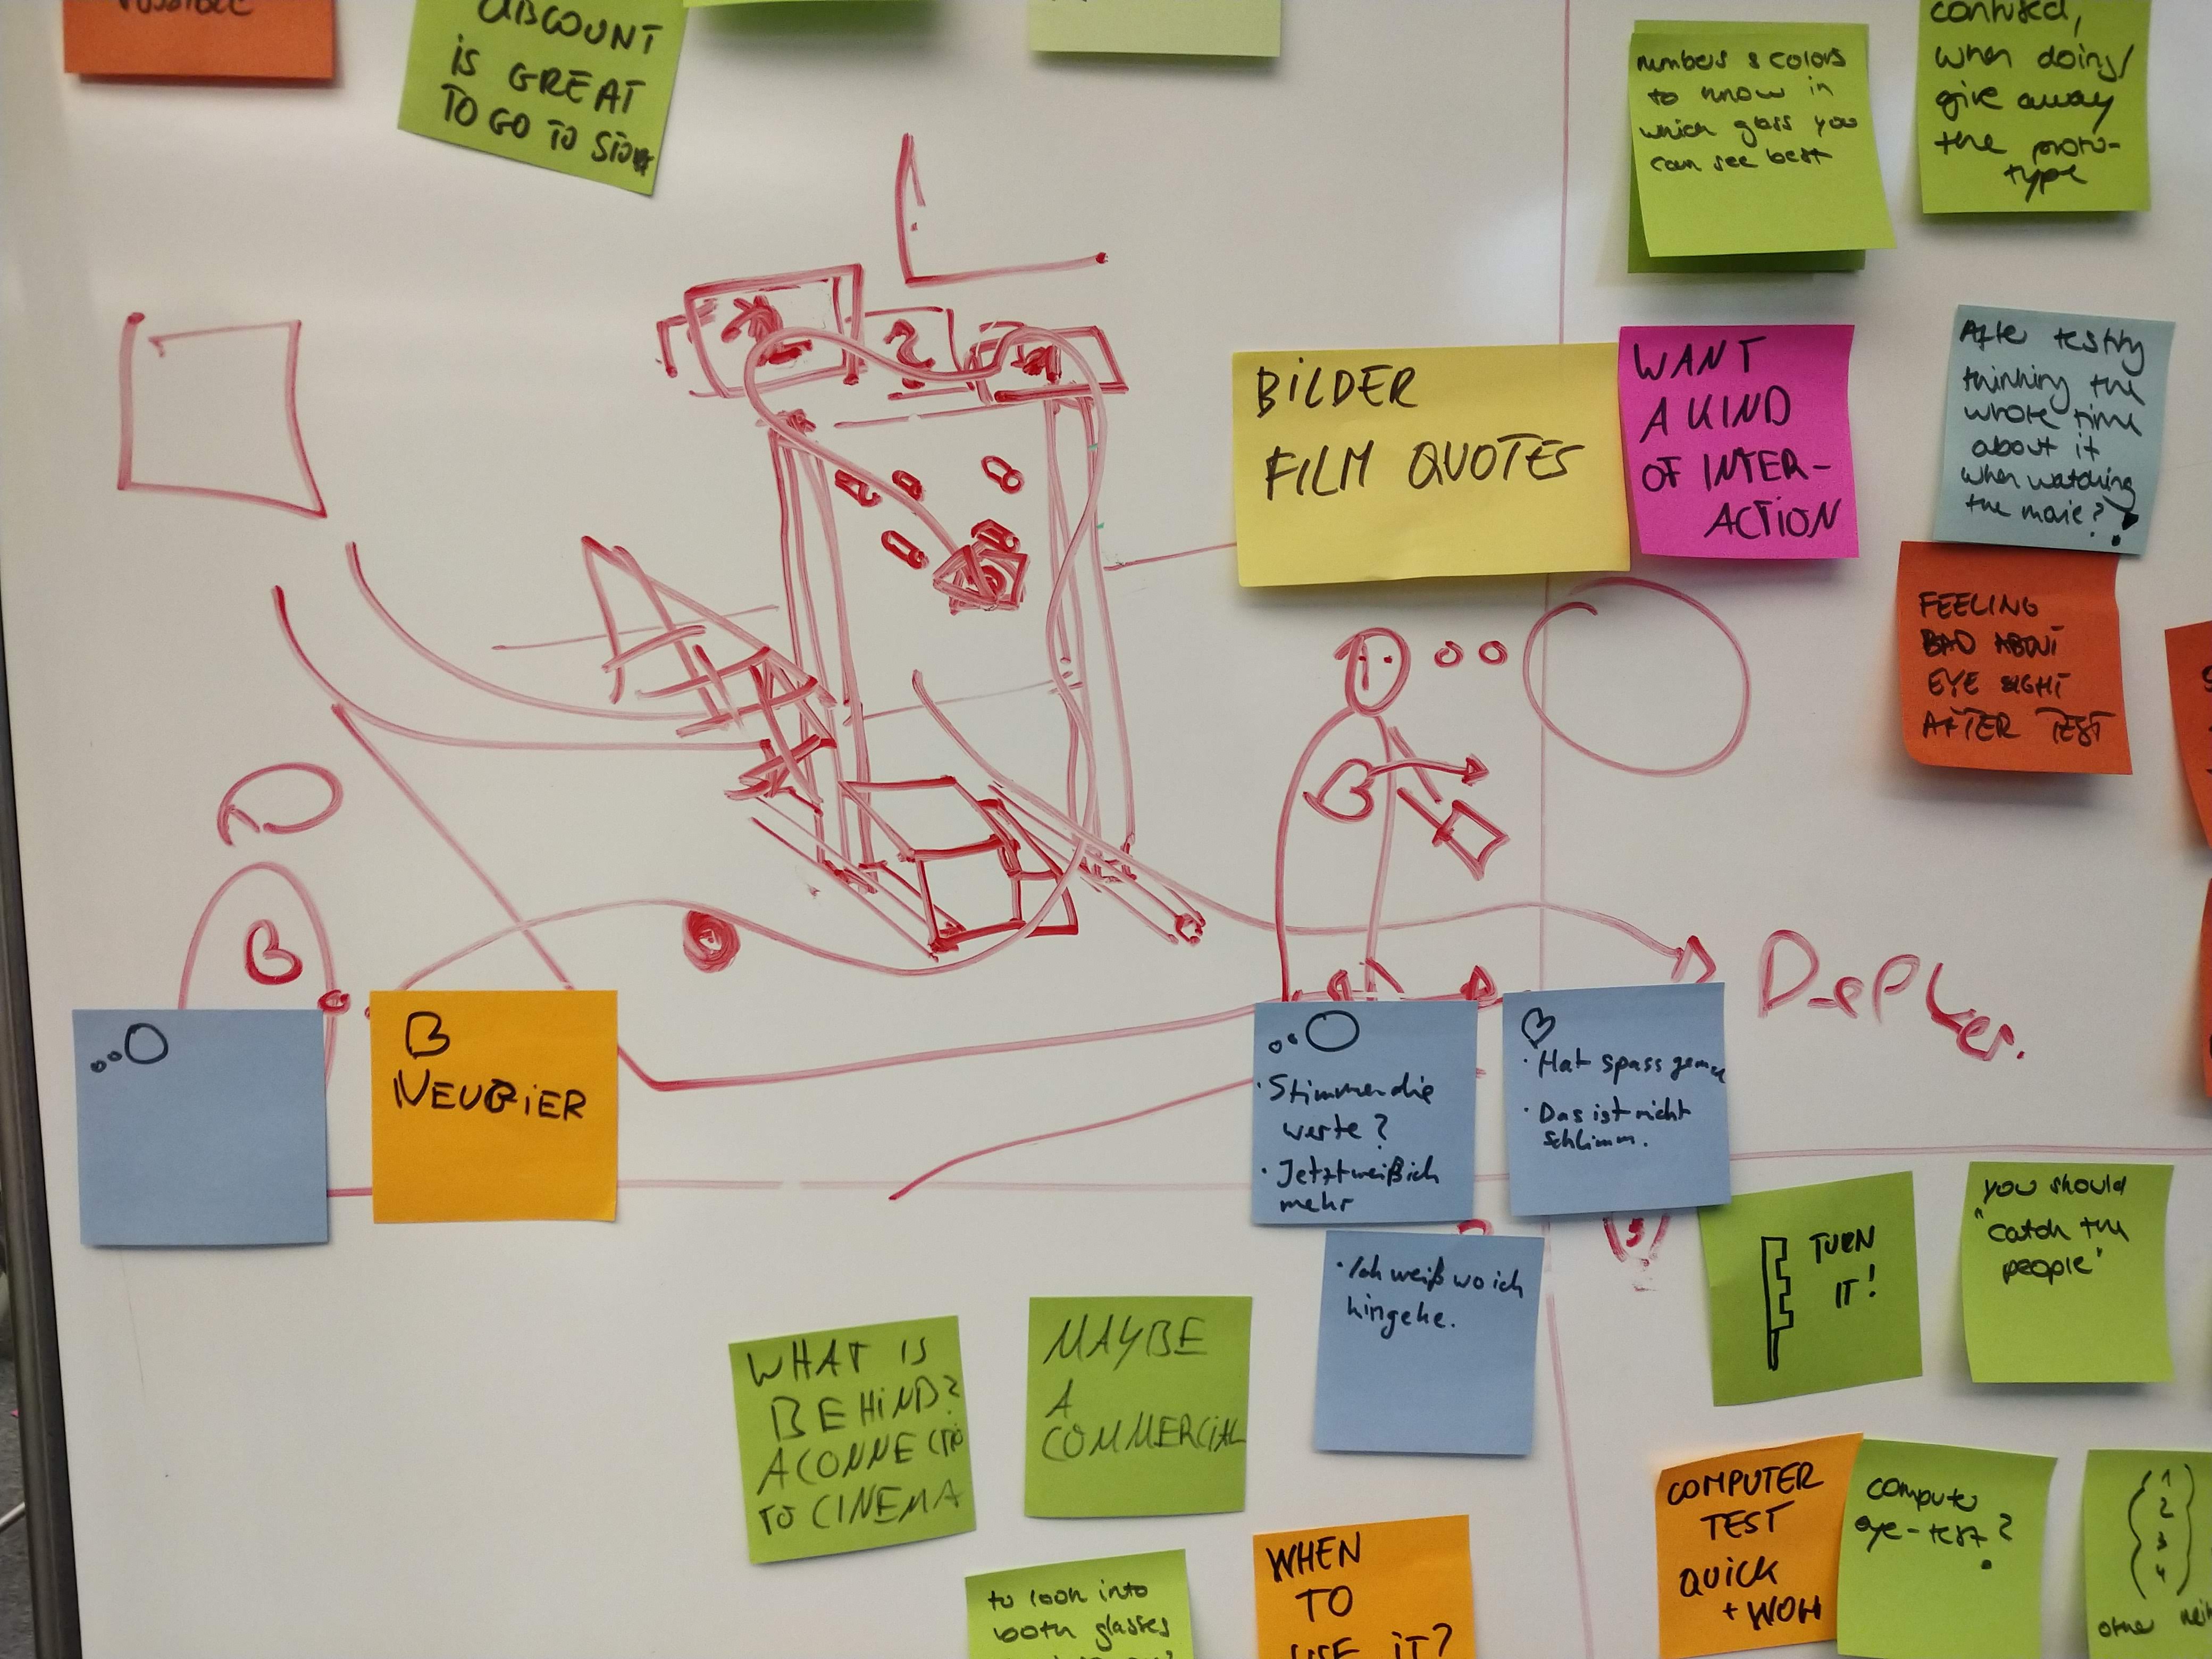 IS GREAT
TO GO TO
numbers & colors
to know in
which glass you
can see best
confused,
when doing/
give away
the proto-
type
BILDER
FILM QUOTES
WANT
A KIND
OF INTER-
ACTION
After testing
thinking the
whole time
about it
when watching
the movie?
FEELING
BAD ABOUT
EYE SIGHT
AFTER TEST
2
NEUGIER
Stimmen die
werte?
Jetzt weiß ich
mehr
Hat spass
Das ist nicht
schlimm.
Ich weiß wo ich
hingehe.
TURN
IT!
you should
"catch the
people"
WHAT IS
BEHIND?
A CONNECTIO
TO CINEMA
MAYBE
A
COMMERCIAL
to look into
both glasses
WHEN
TO
USE IT?
COMPUTER
TEST
QUICK
+ WOW
computer
eye-test?
1
2
3
4